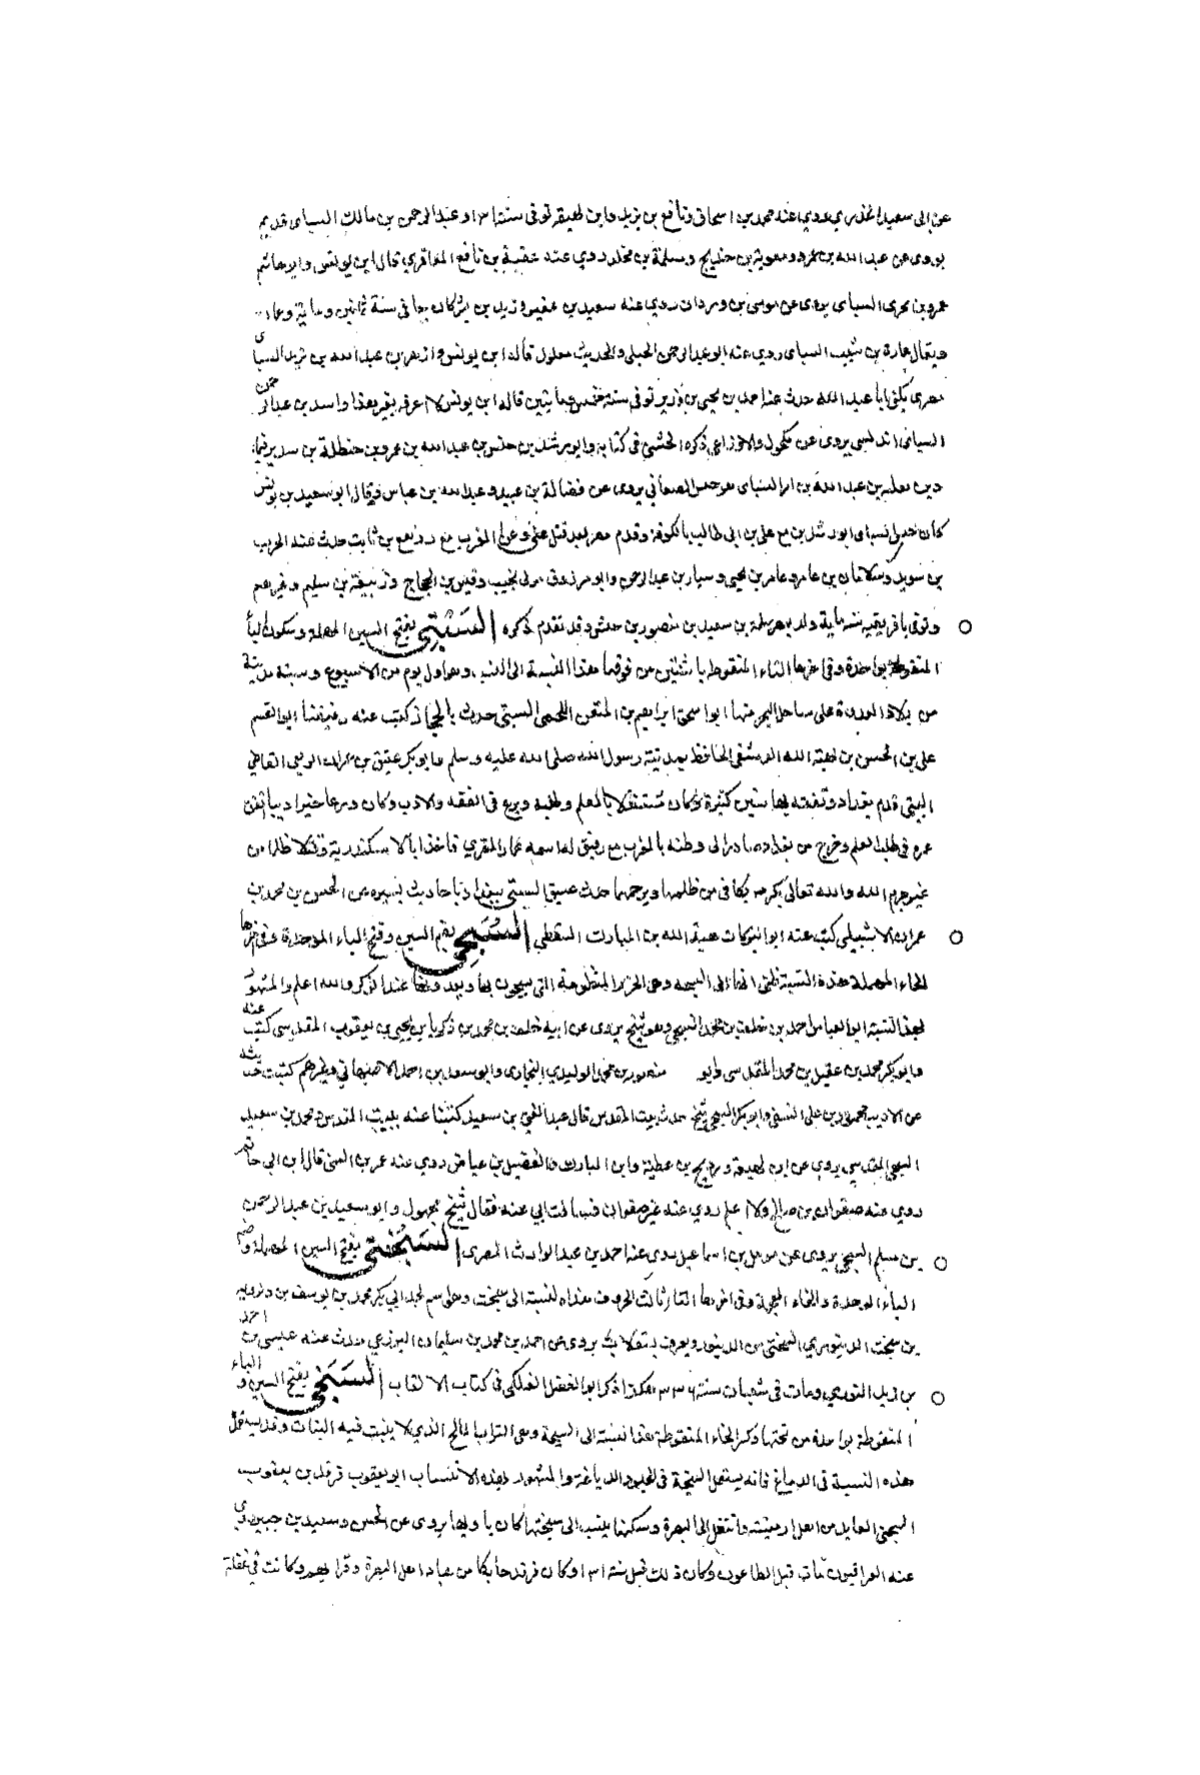 عن ابى سعيد الخدري روى عنه محمد بن اسحاق ونافع بن يزيد وابن لهيعة توفى سنة ١٣١ وعبد الرحمن بن مالك السباى قديم
يروى عن عبد الله بن عمرو ومعوية بن حديج ومسلمة بن مخلد روى عنه عقبة بن نافع المعافري قال ابن يونس وابو هاشم
عمرو بن بحرى السباى يروى عن موسى بن وردان روى عنه سعيد بن عفير وزيد بن بشر كان حيا فى سنة ثمانين وماية وعمارة
ويقال عمارة بن شبيب السباى روى عنه ابو عبد الرحمن الحبلى والحديث معلول قاله ابن يونس وازهر بن عبد الله بن يزيد السباى
مصرى يكنى ابا عبد الله حدث عنه احمد بن يحيى بن وزير توفى سنة خمس ومأيتين قاله ابن يونس لا اعرفه بغير هذا واسد بن عبد الرحمن
السباى اندلسى يروى عن مكحول والاوزاعى ذكره الخشنى فى كتابه وابو رشدين حنش بن عبد الله بن عمرو بن حنظلة بن
بن ثعلبة بن عبد الله بن السباى هو حنش الصنعانى يروى عن فضالة بن عبيد وعبد الله بن عباس وقال ابو سعيد بن يونس
كان حنش السباى ابو رشدين مع على بن ابى طالب بالكوفة وقدم مصر بعد قتل على وغزا المغرب مع رويفع بن ثابت حدث عنه الحرب
بن سويد وسلامان بن عامر وعامر بن يحيى وسيار بن عبد الرحمن وابو مرزوق مولى تجيب وقيس بن الحجاج وربيعة بن سليم وغيرهم
وتوفى بافريقية سنة ماية ولده بمصر سلمة بن سعيد بن منصور بن حنش وقد تقدم ذكره السَبْتِي بفتح السين المهملة وسكون الباء
المنقوطة بواحدة وفى اخرها التاء المنقوطة باثنتين من فوقها هذا النسبة الى السبت وهو اول يوم من الاسبوع وسبتة مدينة
من بلاد العدوة على ساحل البحر منها ابو اسحق ابراهيم بن المتقن اللخمى السبتى حدث بالحجاز كتب عنه رفيقنا ابو القسم
على بن الحسن بن هبة الله الدمشقى الحافظ بمدينة رسول الله صلى الله عليه وسلم وابو بكر عتيق بن عمران الربعى القاضى
السبتى قدم بغداد وتفقه بها سنين كثيرة وكان مشتغلا بالعلم وطلبه وبرع فى الفقه والادب وكان ورعا خيرا دينا افنى
عمره فى طلب العلم وخرج من بغداد صادرا الى وطنه بالمغرب مع رفيق له اسمه عمار المقري فاخذا بالاسكندرية وقتلا ظلما من
غير جرم الله والله تعالى يكرمه يكافى من ظلمهما ويرحمهما حدث عتيق السبتى ببغداد باحاديث يسيره عن الحسن بن محمد بن
عمران الاشبيلى كتب عنه ابو البركات هبة الله بن المبارك السقطى السُبَحِي بضم السين وفتح الباء الموحدة وفى اخرها
الحاء المهملة هذه النسبة ظنى انها الى السبحه وهى الخرز المنظومة التى يسبحون بها ويعدونها عند الذكر والله اعلم والمشهور
بهذا النسبة ابو العباس احمد بن خلف بن محمد السبحى وهو شيخ يروى عن ابيه خلف بن محمد بن زكريا بن يحيى بن يعقوب المقدسى كتب عنه
وابو بكر محمد بن عقيل بن محمد المقدسى وابو منصور بن محمد الوليدى البخارى وابو سعد بن احمد الاصبهانى وغيرهم كتبت حديثه
عن الاديب محمود بن على النسفى وابو بكر السبحى شيخ حدث ببيت المقدس قال عبد الغنى بن سعيد كتبنا عنه ببيت المقدس ومحمد بن سعيد
السبحى المقدسى يروى عن ابن لهيعة وبن عطية وابن المبارك والفضيل بن عياض روى عنه عمر بن السنى قال ابن ابى حاتم
روى عنه صفوان بن صالح ولا اعلم روى عنه غير صفوان فسالت ابى عنه فقال شيخ مجهول وابو سعيد بن عبد الرحمن
بن مسلم السبحى يروى عن مومل بن اسماعيل روى عنه احمد بن عبد الوارث المصرى السَبُخْتِي بفتح السين المهملة وضم
الباء الموحدة والخاء المعجمة وفى اخرها التاء ثالث الحروف هذاه النسبة الى سبخت وهو اسم لجد ابى بكر محمد بن يوسف بن
بن سبخت الدينورى السبختى من الدينور ويعرف يروى عن احمد بن محمد بن سليمان البرذعى حدث عنه عيسى بن احمد
بن زيد النورى ومات فى شعبان سنة ٣٣٦ هكذا ذكر ابو الفضل الفلكى فى كتاب الالقاب السَبَخِي بفتح السين والباء
المنقوطة بواحدة من تحتها وكسر الخاء المنقوطة هذا نسبة الى السبخة وهى التراب المالح الذى لا ينبت فيه النبات وقد يستعمل
هذه النسبة فى الدباغ فانه يستعمل السبخة فى الجلود الدباغة والمشهور بهذه الانتساب ابو يعقوب فرقد بن يعقوب
السبخى العابد من اهل ارمينية وانتقل الى البصرة وسكنها ينسب الى سبختها كان ياوى بها يروى عن الحسن وسعيد بن جبير روى
عنه العراقيون مات قبل الطاعون وكان ذلك قبل سنة ١٣١ وكان فرقد حايكا من عباد اهل البصرة وقرايهم وكانت فيه غفلة